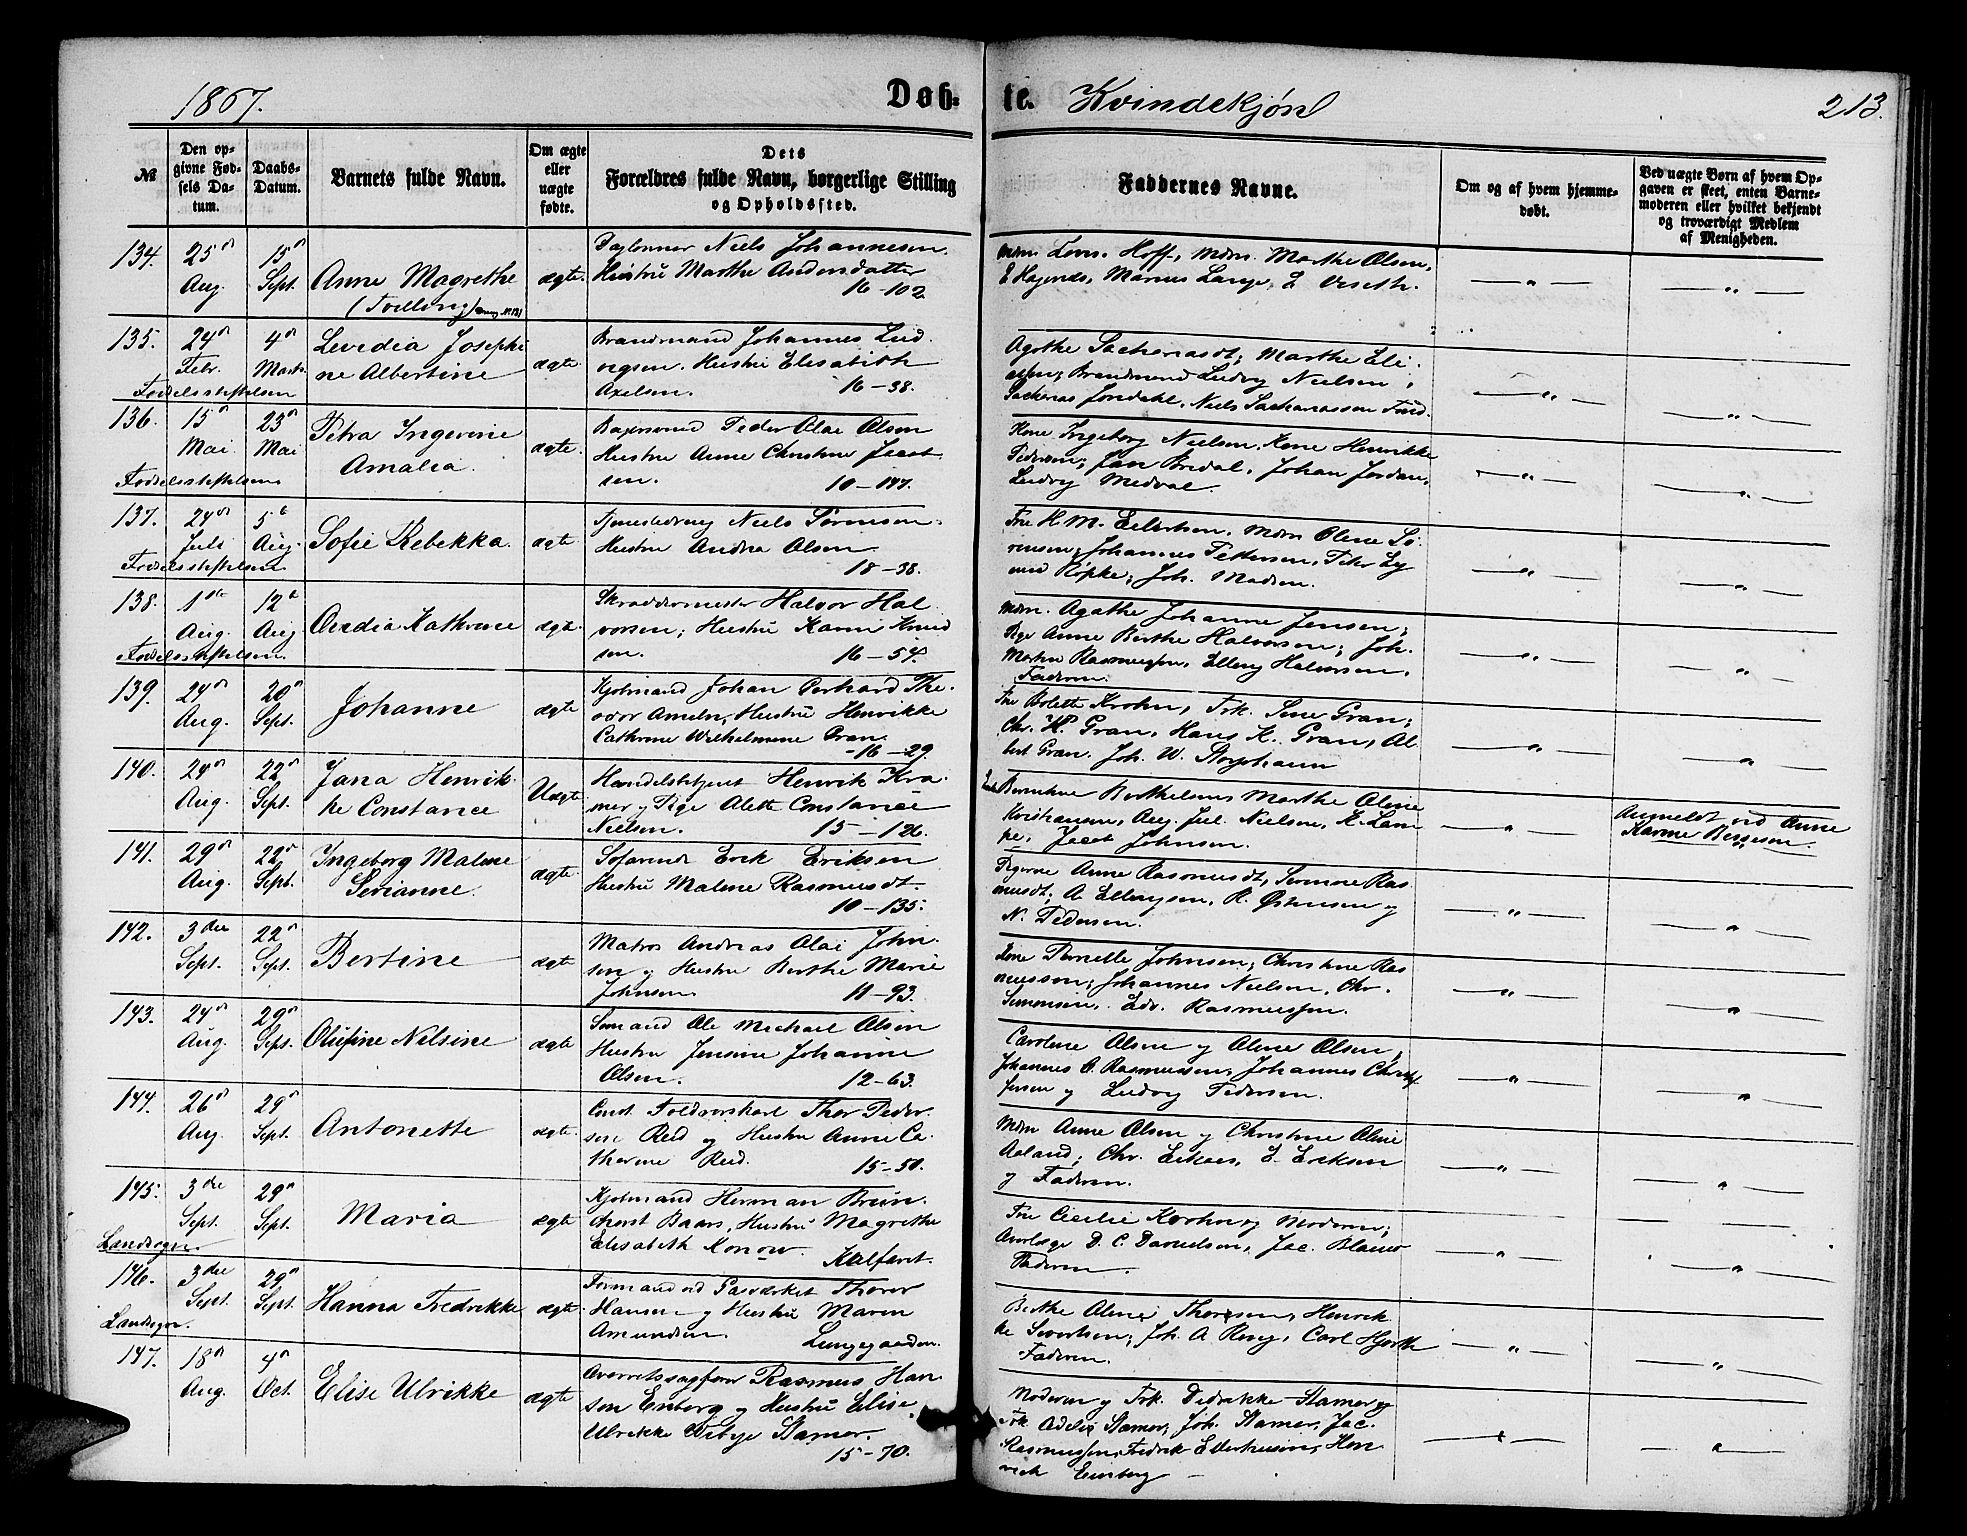 1867.
Døb-
te. Kvindekjøn
213.
№
Den op-
givne Fød-
sels Da-
tum.
Daabs-
Datum.
Barnets fulde Navn.
Om ægte
eller
uægte
fødte.
Dets
Forældres fulde Navn, borgerlige Stilling
og Opholdssted.
Faddernes Navne.
Om og af hvem hjemme-
døbt.
Ved uægte Børn af hvem Op-
gaven er skeet, enten Barne-
moderen eller hvilket bekjendt
og troværdigt Medlem
af Menigheden.
134. 25 Aug. 15 Sept.
Anne Magrethe
(Tvilling)
ægte.
Daglønner Niels Johannesen
Hustru Marthe Andersdatter
16-102
Hoff, Mdm. Marthe Olsen,
Marius Lange,
135. 24 Febr. 4 Marts
Fødselsstiftelsen
Levidia Josephi
ne Albertine
ægte
Brandmand Johannes Lud
vigsen. Hustru Elisabeth
Axelsen. 16-38.
Agathe Marthe Eli
Brandmand Ludvig Nielsen,
Niels
136. 15 Mai 23 Mai
Fødselsstiftelsen
Petra Ingevine
Amalia.
ægte.
Peder Olai Olsen
Hustru Anne Christine Jacob
sen. 10-147.
Kone Ingeborg Nielsen, Kone Henrikke
Pedersen; Jan Bredal, Johan Jordan,
Ludvig Medval.
137. 24 Juli 5 Aug.
Fødselsstiftelsen
Sofie Rebekka.
ægte
Niels Sørensen
Hustru Andrea Olsen
18-38.
Fru H. M. Eilertsen, Mdm Olene Sø
rensen, Johannes Pettersen, Peter
Røpke, Joh. Madsen.
138. 1 Aug. 12 Aug
Fødselsstiftelsen.
Ovedia Kathrine
ægte.
Skræddermester Halvor Hal
vorsen; Hustru Karni Knud
sen. 16-54.
Mdm. Agathe Johanne Jensen;
Pige Anne Berthe Halvorsen; Joh.
Martin Rasmussen, Ellery Halvorsen.
Faderen.
139. 24 Aug. 20 Sept.
Johanne
ægte
Kjøbmand Johan Gerhard The
odor Ameln, Hustru Henrikke
Cathrine Wilhelmine Gran
16-29.
Fru Bolette Krohn, Frk. Sene Gran;
Chr. K. Gran, Hans K. Gran, Al
bert Gran. Joh. W.
140. 24 Aug. 22 Sept.
Jana Henrik-
ke Constance
Uægte
Handelsbetjent Henrik Kra
mer y Pige Alette Constance
Nielsen. 15-126.
Marthe Oline
Kristiansen, Aug. Jul. Nielsen, K. Lam
pe, Jacob Johnsen.
Anmeldt ved Anne
Karine Børgesen.
141. 29 Aug. 22 Sept.
Ingeborg Malene
Serianne.
ægte
Søfarende Erik Eriksen
Hustru Malene Rasmusdt.
10-135.
Pigerne Anne Rasmusdt, Serine Ras
musdt, A. Ellingsen, R. Østensen y
N. Pedersen.
142. 3die Sept. 22 Sept.
Bertine
ægte
Matros Andreas Olai John-
sen y Hustru Berthe Marie
Johnsen 11-93.
Kone Pernille Johnsen; Christine Ras
mussen; Johannes Nielsen, Chr.
Simonsen, Edv. Rasmussen.
143. 24 Aug. 29 Sept.
Olufine Nilsine
ægte
Sømand Ole Michael Olsen
Hustru Jensine Johanne
Olsen. 12-63.
Caroline Olsen y Oline Olsen,
Johannes O. Rasmussen, Johannes Christof
fersen y Ludvig Pedersen.
144. 26 Aug. 29 Sept.
Antonette
ægte.
Const. Toldrorskarl Thor Peder
sen Reid y Hustru Anne Ca-
tharine Reid. 15-50.
Mdm Anne Olsen y Christine Oline
Aaland; Chr. E. Eriksen
y Faderen.
145. 3die Sept. 29 Sept.
Landsogn
Maria
ægte
Kjøbmand Herman Brun
chorst Baars, Hustru Magrethe
Elisabeth Konow. Kalfaret.
Fru Cecilie Krohn y Moderen;
Overlæge D. C. Danielsen, Jac. Blaauw
Faderen.
146. 3die Sept. 29 Sept.
Landsogn.
Hanna Fredrikke
ægte.
Formand ved Gasværket Thorer
Hansen y Hustru Maren
Amundsen. Lungegaarden.
Berthe Oline Thoresen, Henrik
ke Sivertsen; Joh. A. Carl Hjorth
Faderen.
147. 18 Aug. 4 Oct.
Elise Ulrikke
ægte
Overretssagfører Rasmus Han
sen Enberg y Hustru Elise
Ulrikke Stamer.
15-70.
Moderen y Frk. Didrikke Stamer y
Frk. Adelis Stamer, Joh. Stamer, Jac.
Rasmussen, Fredrik Ellerhusen, Hen
rich Einberg